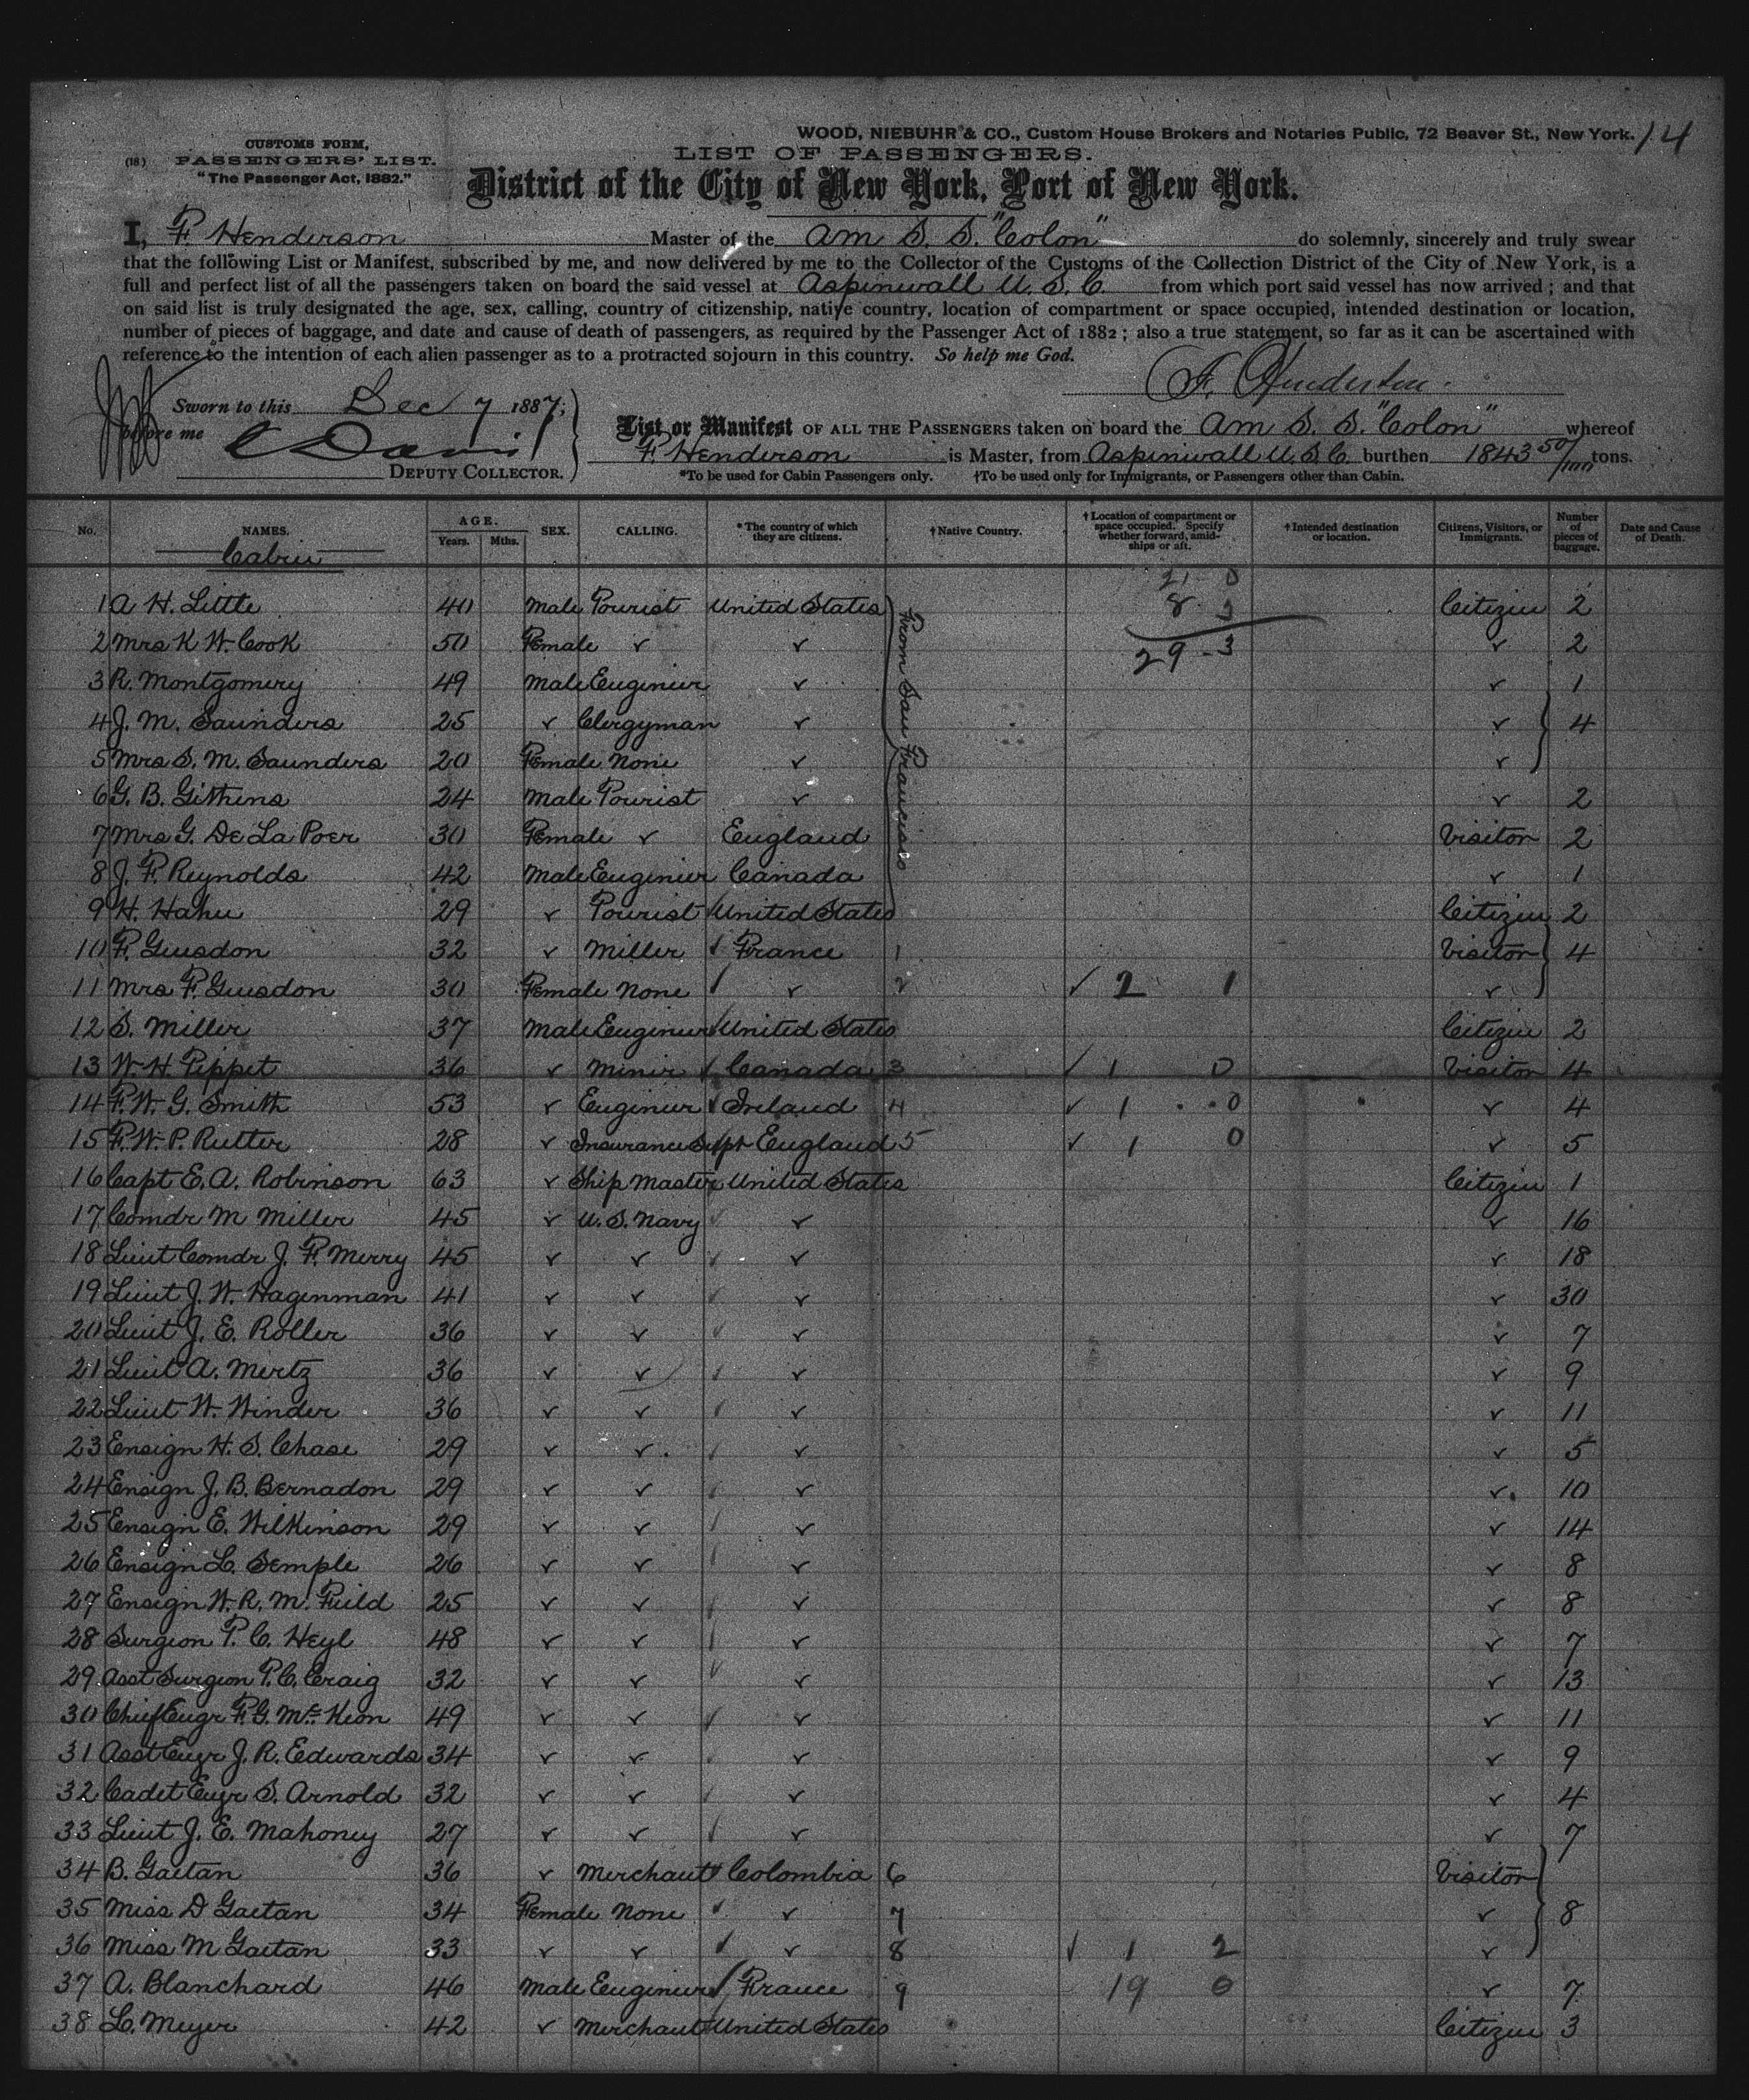 WOOD, NIEBUHR & CO., Custom House Brokers and Notaries Public, 72 Beaver St., New York. 14
CUSTOMS FORM,
(18) PASSENGERS' LIST.
"The Passenger Act, 1882."
LIST OF PASSENGERS.
District of the City of New York, Port of New York.
I, F. Henderson Master of the Am S. S. "Colon" do solemnly, sincerely and truly swear
that the following List or Manifest, subscribed by me, and now delivered by me to the Collector of the Customs of the Collection District of the City of New York, is a
full and perfect list of all the passengers taken on board the said vessel at Aspinwall U. S. C. from which port said vessel has now arrived ; and that
on said list is truly designated the age, sex, calling, country of citizenship, native country, location of compartment or space occupied, intended destination or location,
number of pieces of baggage, and date and cause of death of passengers, as required by the Passenger Act of 1882 ; also a true statement, so far as it can be ascertained with
reference to the intention of each alien passenger as to a protracted sojourn in this country. So help me God.
F. Henderson.
Sworn to this Dec 7 1887;
before me C Davis
DEPUTY COLLECTOR.
List or Manifest OF ALL THE PASSENGERS taken on board the Am S. S. "Colon" whereof
F. Henderson is Master, from Aspinwall U. S. C. burthen 1843 50/100 tons.
*To be used for Cabin Passengers only. †To be used only for Immigrants, or Passengers other than Cabin.
No. NAMES. AGE. Years. Mths. SEX. CALLING. *The country of which they are citizens. †Native Country. †Location of compartment or space occupied. Specify whether forward, amidships or aft. †Intended destination or location. Citizens, Visitors, or Immigrants. Number of pieces of baggage. Date and Cause of Death.
Cabin
21 0
1 A H. Little 40 Male Tourist United States 8 3 Citizen 2
From San Francisco
2 Mrs K W. Cook 50 Female ✓ ✓ 29 - 3 ✓ 2
3 R. Montgomery 49 Male Engineer ✓ ✓ 1
4 J. M. Saunders 25 ✓ Clergyman ✓ ✓ 4
5 Mrs S. M. Saunders 20 Female None ✓ ✓
6 G. B. Githens 24 Male Tourist ✓ ✓ 2
7 Mrs G. De La Poer 30 Female ✓ England Visitor 2
8 J. F. Reynolds 42 Male Engineer Canada ✓ 1
9 H. Hahn 29 ✓ Tourist United States Citizen 2
10 F. Guesdon 32 ✓ Miller France 1 Visitor 4
11 Mrs F. Guesdon 30 Female None ✓ 2 ✓ 2 1 ✓
12 S. Miller 37 Male Engineer United States Citizen 2
13 W. H. Peppet 36 ✓ Miner Canada 3 ✓ 1 0 Visitor 4
14 F. W. G. Smith 53 ✓ Engineer Ireland 4 ✓ 1 0 ✓ 4
15 F. W. P. Rutter 28 ✓ Insurance Supt England 5 ✓ 1 0 ✓ 5
16 Capt E. A. Robinson 63 ✓ Ship Master United States Citizen 1
17 Comdr M Miller 45 ✓ U. S. Navy ✓ ✓ 16
18 Lieut Comdr J. F. Merry 45 ✓ ✓ ✓ ✓ 18
19 Lieut J. W. Hagenman 41 ✓ ✓ ✓ ✓ 30
20 Lieut J. E. Roller 36 ✓ ✓ ✓ ✓ 7
21 Lieut A. Mertz 36 ✓ ✓ ✓ ✓ 9
22 Lieut W. Winder 36 ✓ ✓ ✓ ✓ 11
23 Ensign H. S. Chase 29 ✓ ✓ ✓ ✓ 5
24 Ensign J. B. Bernadon 29 ✓ ✓ ✓ ✓ 10
25 Ensign E. Wilkinson 29 ✓ ✓ ✓ ✓ 14
26 Ensign L. Semple 26 ✓ ✓ ✓ ✓ 8
27 Ensign W. R. M. Field 25 ✓ ✓ ✓ ✓ 8
28 Surgeon T. C. Heyl 48 ✓ ✓ ✓ ✓ 7
29 Asst Surgeon T. C. Craig 32 ✓ ✓ ✓ ✓ 13
30 Chief Engr F. G. McKeon 49 ✓ ✓ ✓ ✓ 11
31 Asst Engr J. R. Edwards 34 ✓ ✓ ✓ ✓ 9
32 Cadet Engr S. Arnold 32 ✓ ✓ ✓ ✓ 4
33 Lieut J. E. Mahoney 27 ✓ ✓ ✓ ✓ 7
34 B. Gaetan 36 ✓ Merchant Colombia 6 Visitor
35 Miss D Gaetan 34 Female None ✓ 7 ✓ 8
36 Miss M Gaetan 33 ✓ ✓ ✓ 8 ✓ 1 2 ✓
37 A. Blanchard 46 Male Engineer France 9 19 0 ✓ 7
38 L. Meyer 42 ✓ Merchant United States Citizen 3